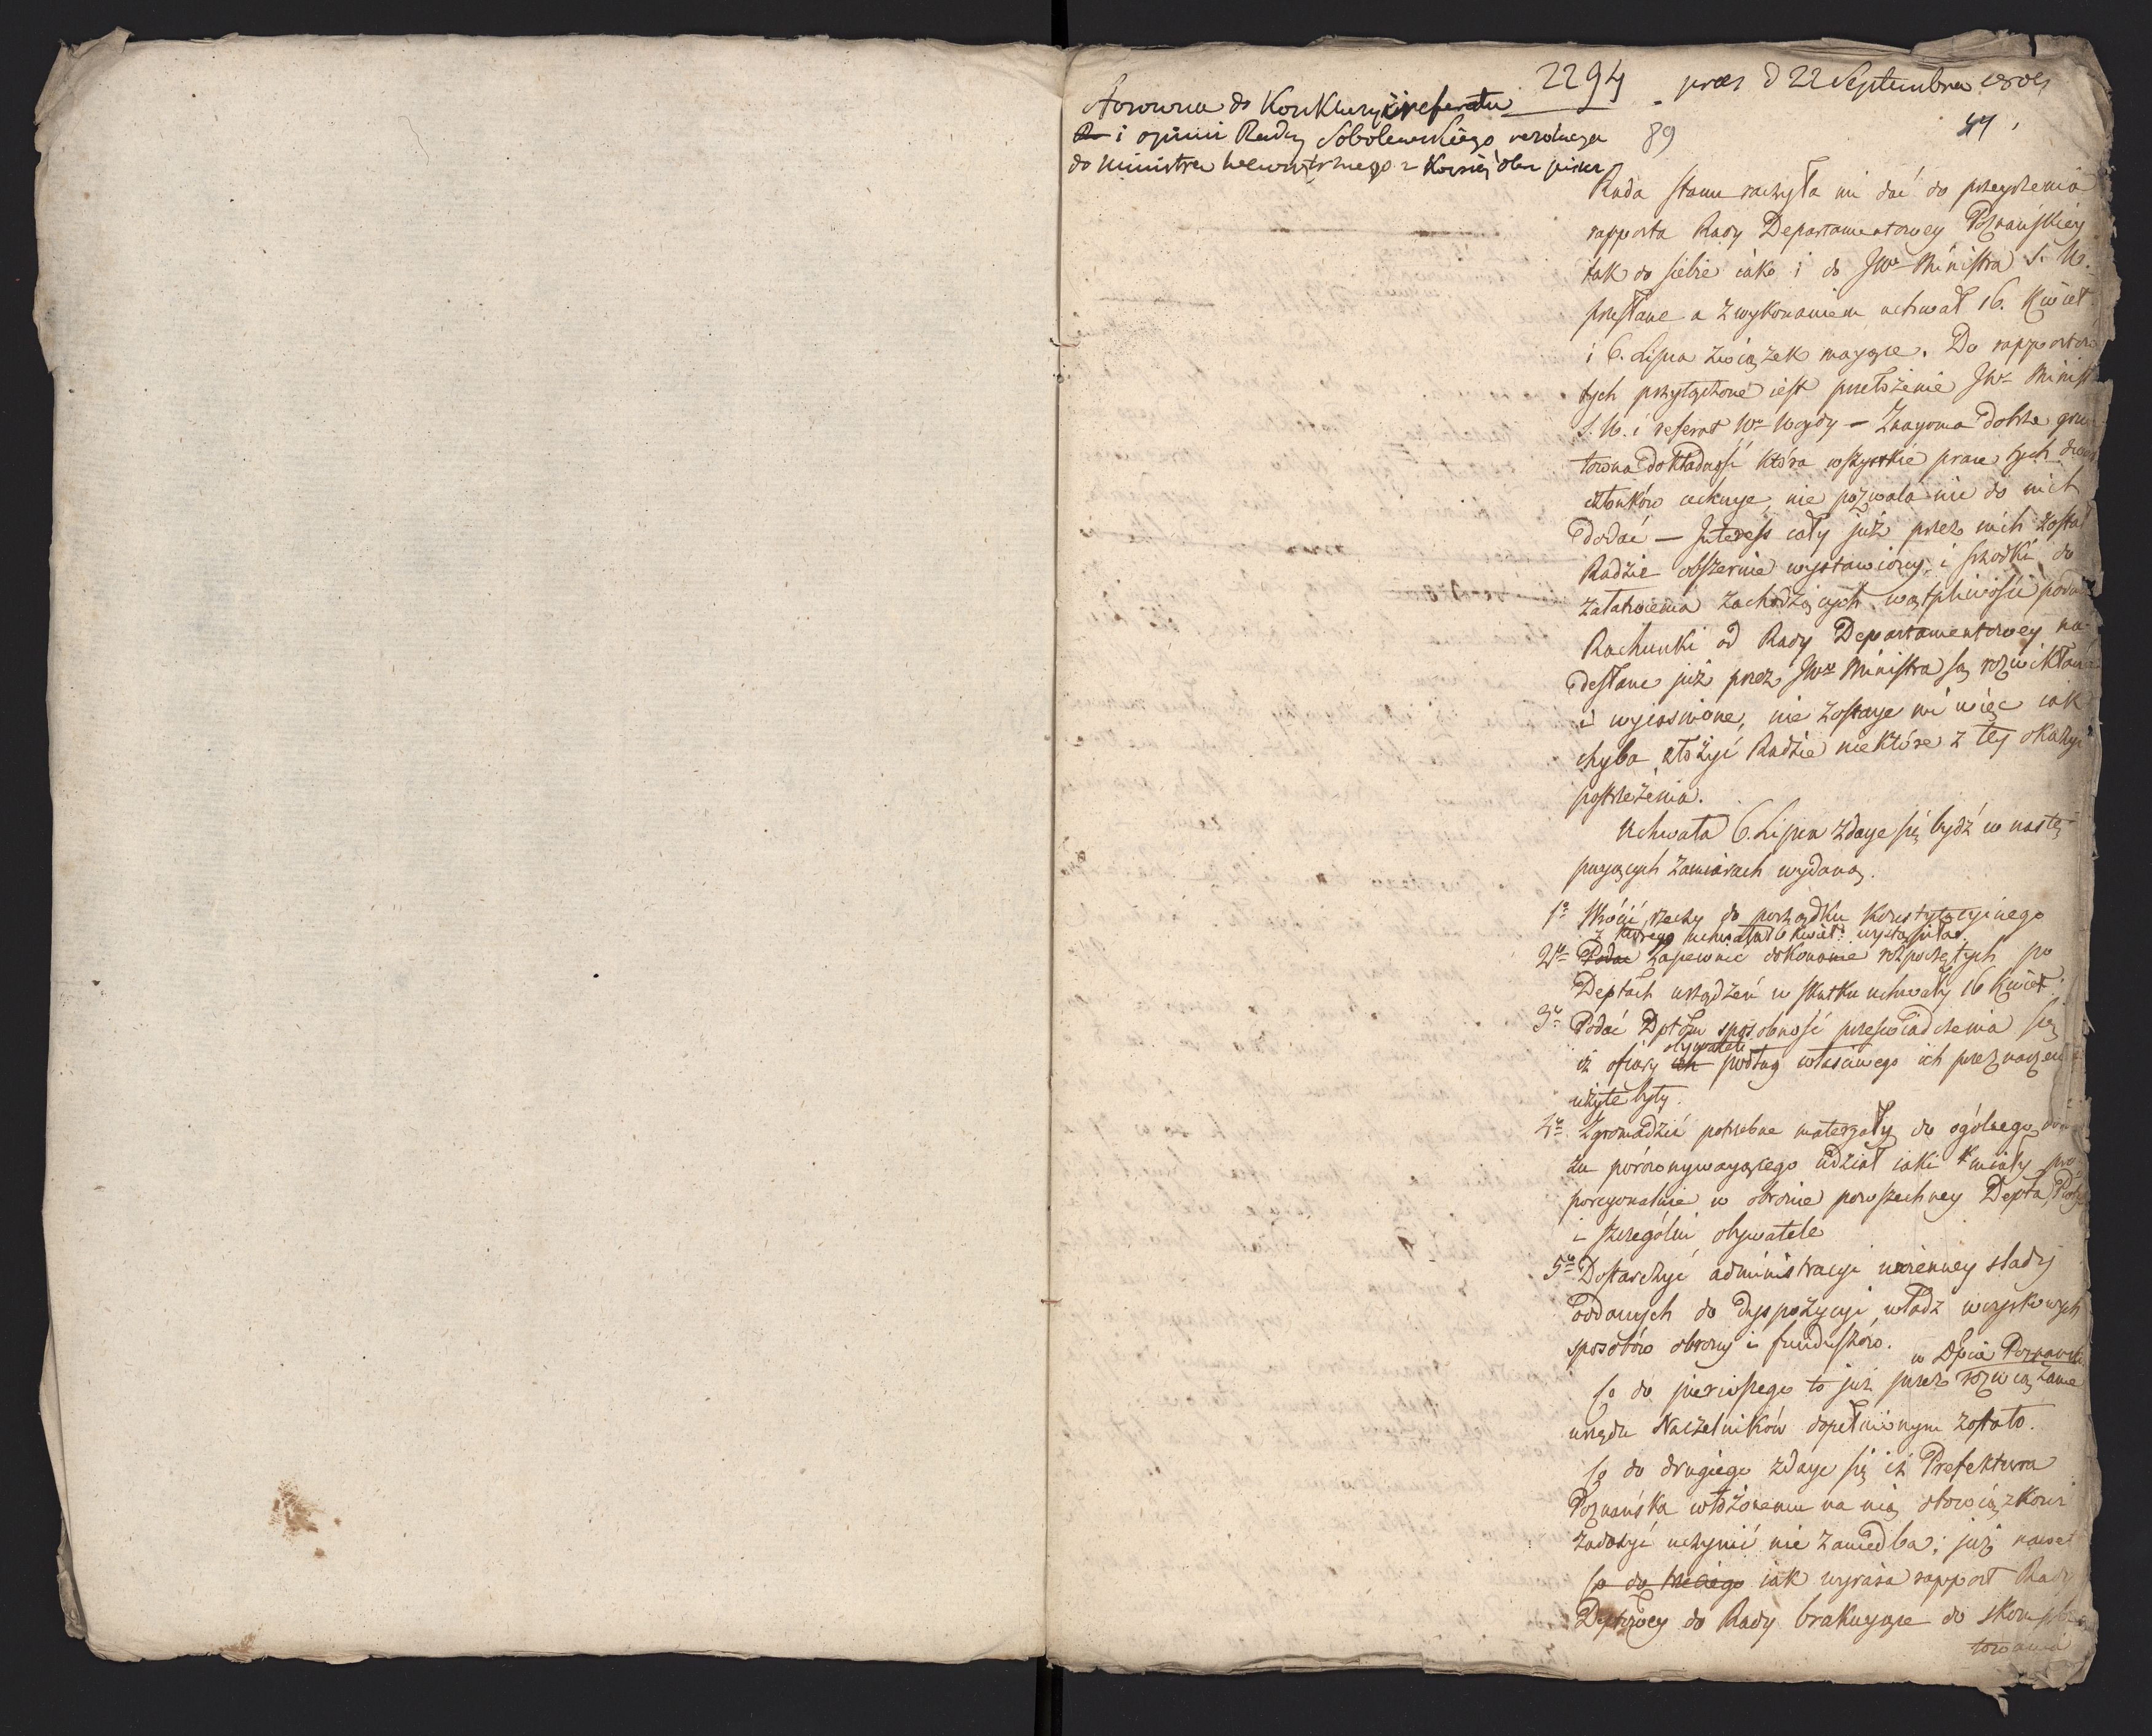 2294
praes d 22 Septembra 1809
Stosowna do Konkluzyi referatu
i opinii Rady Sobolewskiego rezolucya
do Ministra Wewnętrznego z Kopią obu pism
89
44
Rada Stanu raczyła mi dać do przeyrzenia
rapporta Rady Departamentowey Poznańskiey
tak do siebie iako i do JW Ministra S. W.
przesłane a z wykonaniem uchwał 16. Kwiet.
i 6. Lipca związek maiące. Do rapportów
tych przyłączone iest przełożenie JW Minist
S. W. i referat W Wojdy – Znajoma dobrze grun
towna dokładność która wszystkie prace tych dwóch
członków cechuje, nie pozwala nic do nich
dodać – Interess cały już przez nich został
Radzie obszernie wystawiony, i środki do
załatwienia zachodzących wątpliwości podane
Rachunki od Rady Departamentowey na-
desłane już przez JW Ministra są rozwikłane
i wyiaśnione, nie zostaje mi więc iak
chyba złożyć Radzie niektóre z tey okazyi
postrzeżenia.
Uchwała 6. Lipca zdaye się bydź w nastę-
puyących zamiarach wydaną.
1o Wrócić rzeczy do porządku Konstytucyinego
z którego uchwała 16 Kwiet: wystąpiła
2o Podać Zapewnić dokonanie rozpoczętych po
Deptach urządzeń w skutku uchwały 16 Kwiet.
3o Podać Dptom sposobność przeświadczenia się
obywateli
iż ofiary ich podług właściwego ich przeznaczenia
użyte były.
4o Zgromadzić potrzebne materyały do ogólnego
zu porównywaiącego udział iaki mieli pro-
porcyonalnie w obronie powszechney Depta,
i szczególni obywatele
5o Dostarczyć administracyi woienney ślady
oddanych do dyspozycyi władz woyskowych
sposobów obrony i funduszów.
w Dpcie Poznańsk
Co do pierwszego to już przez rozwiązanie
urzędu Naczelników dopełnionym zostało.
Co do drugiego zdaye się iż Prefektura
Poznańska włożonemu na nią obowiązkowi
zadosyć uczynić nie zaniedba; już nawet
Co do trzeciego iak wyraża rapport Rady
Deptowey do Rady brakuyące do skomple
towania